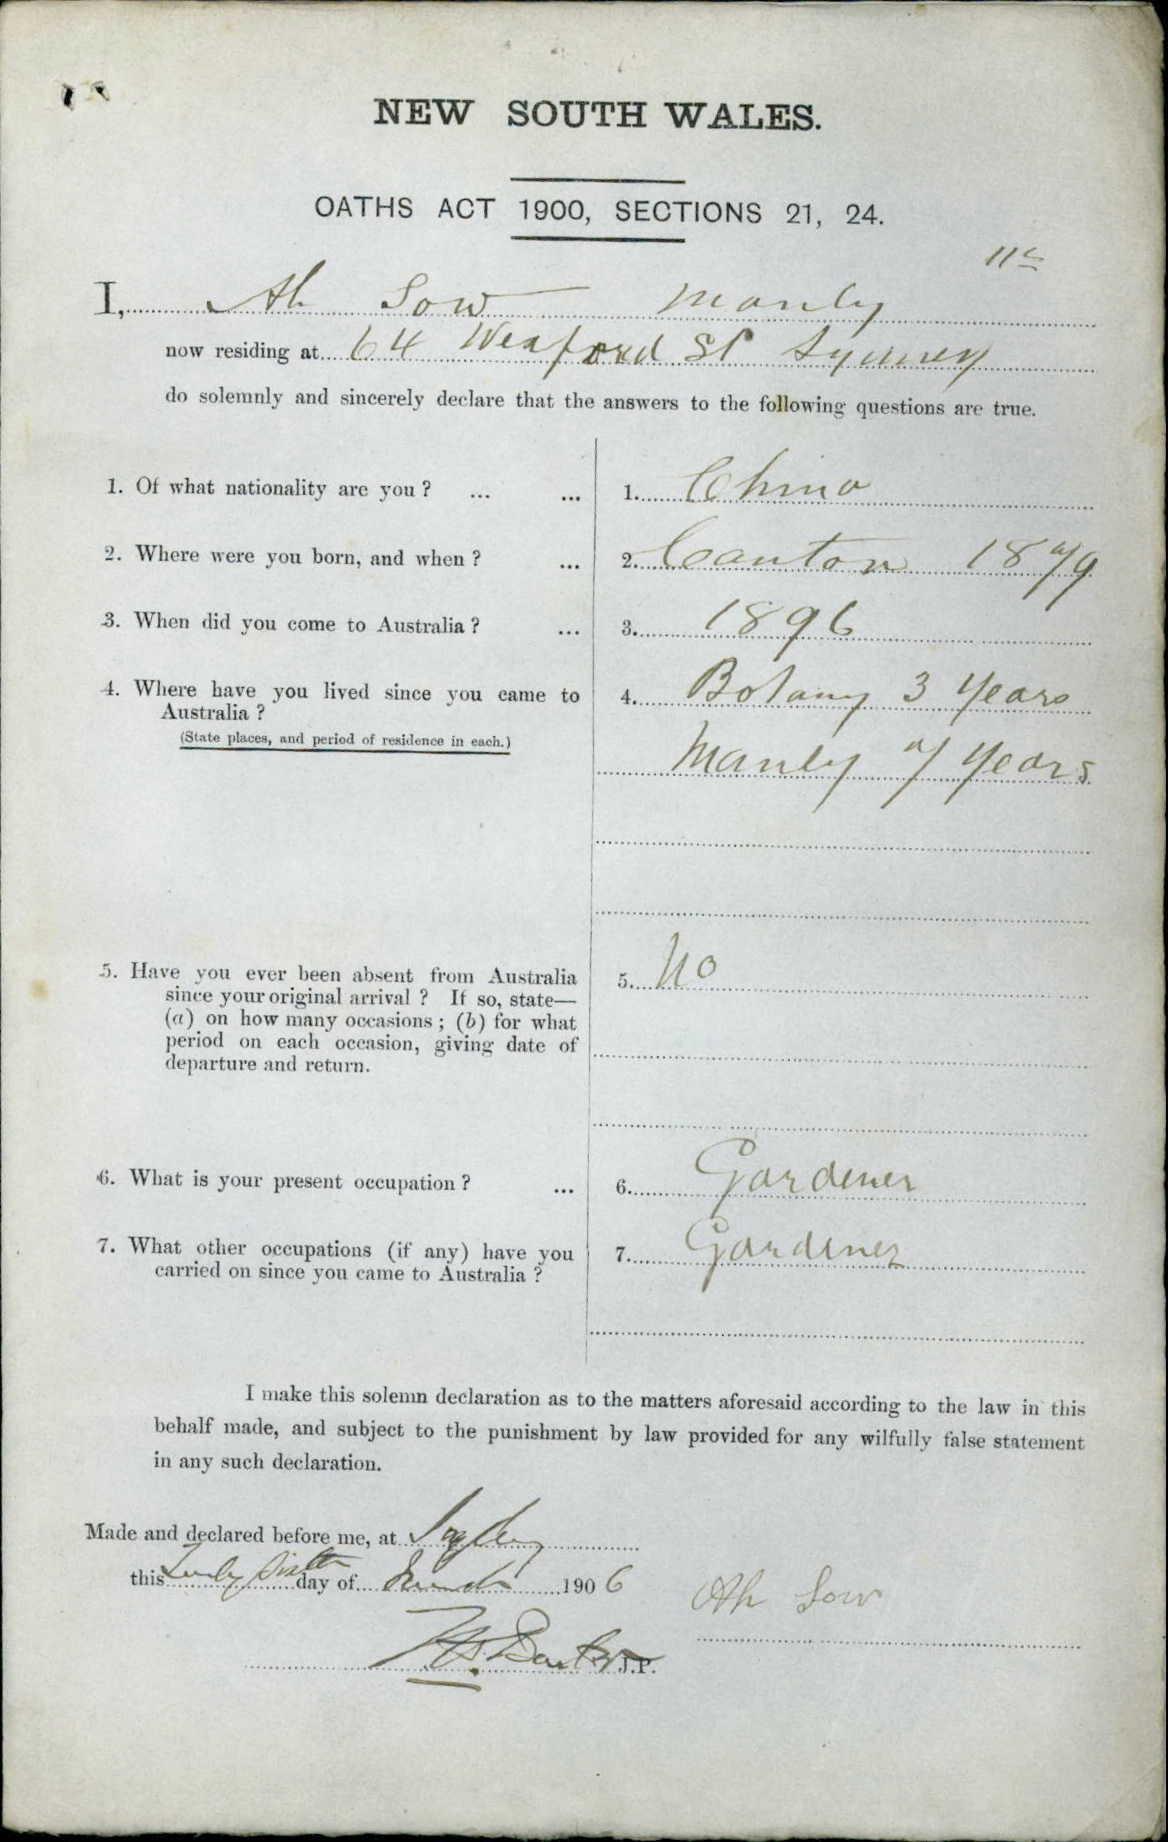 NEW SOUTH WALES.
OATHS ACT 1900, SECTIONS 21, 24.
I, Ah Sow Manly
now residing at 64 Wexford St Sydney
do solemnly and sincerely declare that the answers to the following questions are true.
1. Of what nationality are you? ... ... 1. China
2. Where were you born, and when? ... 2. Canton 1879
3. When did you come to Australia? ... 3. 1896
4. Where have you lived since you came to 4. Botany 3 years
Australia?
(State places, and period of residence in each.)
Manly 7 years
5. Have you ever been absent from Australia 5. No
since your original arrival? If so, state—
(a) on how many occasions; (b) for what
period on each occasion, giving date of
departure and return.
6. What is your present occupation? ... 6. Gardener
7. What other occupations (if any) have you 7. Gardener
carried on since you came to Australia?
I make this solemn declaration as to the matters aforesaid according to the law in this
behalf made, and subject to the punishment by law provided for any wilfully false statement
in any such declaration.
Made and declared before me, at Sydney
this day of March 1906
Ah Sow
J.P.